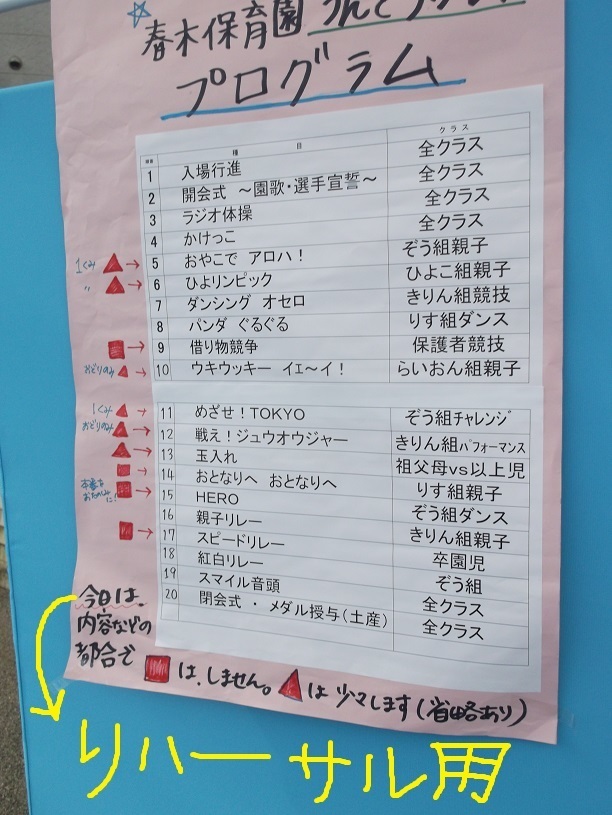 ☆春木保育園 うんどうかい
プログラム
種目 クラス
1 入場行進 全クラス
2 開会式 ～園歌・選手宣誓～ 全クラス
3 ラジオ体操 全クラス
4 かけっこ 全クラス
1くみ ▲→ 5 おやこで アロハ! ぞう組親子
〃 ▲→ 6 ひよリンピック ひよこ組親子
7 ダンシング オセロ きりん組競技
8 パンダ ぐるぐる りす組ダンス
■→ 9 借り物競争 保護者競技
おどりのみ ▲→ 10 ウキウッキー イェ～イ! らいおん組親子
1くみ ▲→ 11 めざせ!TOKYO ぞう組チャレンジ
おどりのみ ▲→ 12 戦え!ジュウオウジャー きりん組パフォーマンス
▲→ 13 玉入れ 祖父母vs以上児
■→ 14 おとなりへ おとなりへ りす組親子
本番をおたのしみに! ■→ 15 HERO ぞう組ダンス
16 親子リレー きりん組親子
■→ 17 スピードリレー 卒園児
18 紅白リレー ぞう組
19 スマイル音頭 全クラス
20 閉会式 ・ メダル授与(土産) 全クラス
今日は、
内容などの
都合で ■は、しません。▲は 少々します(省略あり)
リハーサル用